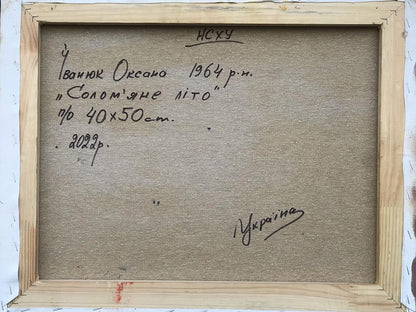 НСХУ
Іванюк Оксана 1964 р.н.
„Солом'яне літо"
п/о 40х50ст.
2022р.
Україна